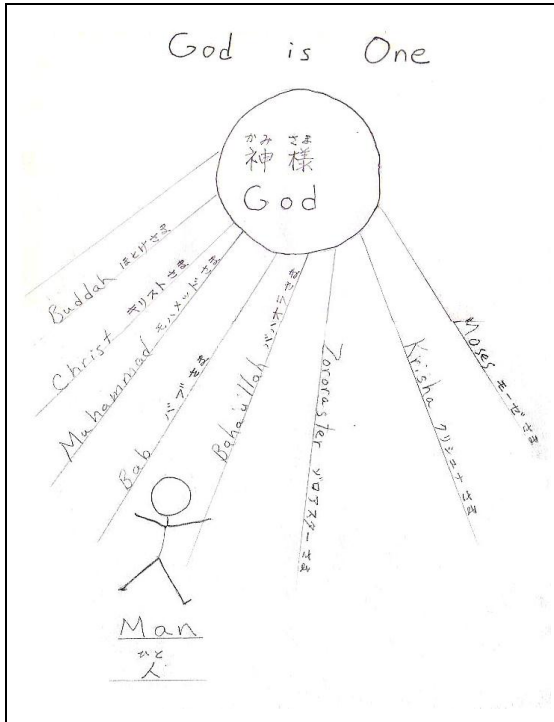 God is One
かみ さま
神 様
God
Buddah ほとけさま
Christ キリストさま
Muhammad モハメッドさま
Bab バブさま
Baha'u'llah
Zororaster ゾロアスターさま
Krisha クリシュナさま
Moses モーゼさま
Man
ひと
人